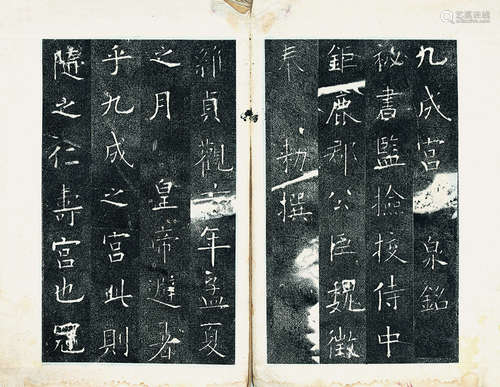 九成宮泉銘
祕書監撿挍侍中
鉅鹿郡公臣魏徵
奉勑撰
維貞觀年孟夏
之月皇帝避暑
乎九成之宮此則
隨之仁壽宮也冠